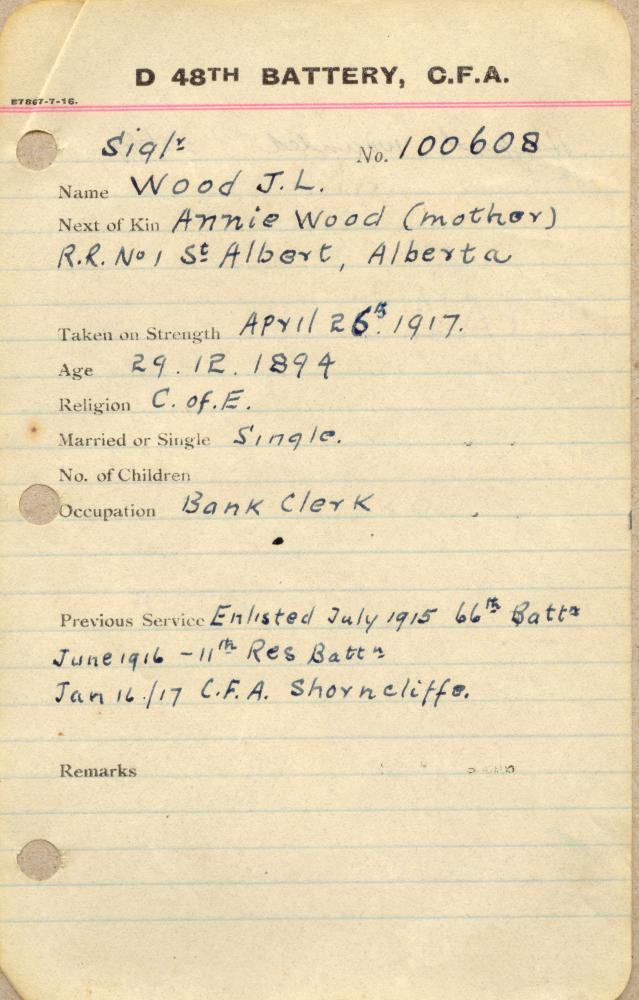 D 48TH BATTERY, C.F.A.
B7867-7-16.
Siglr No. 100608
Name Wood J.L.
Next of Kin Annie Wood (mother)
R.R. No 1 St Albert, Alberta
Taken on Strength April 26th 1917.
Age 29.12.1894
Religion C. of E.
Married or Single Single.
No. of Children
Occupation Bank Clerk
Previous Service Enlisted July 1915 66th Battn
June 1916 - 11th Res Battn
Jan 16/17 C.F.A. Shorncliffe.
Remarks